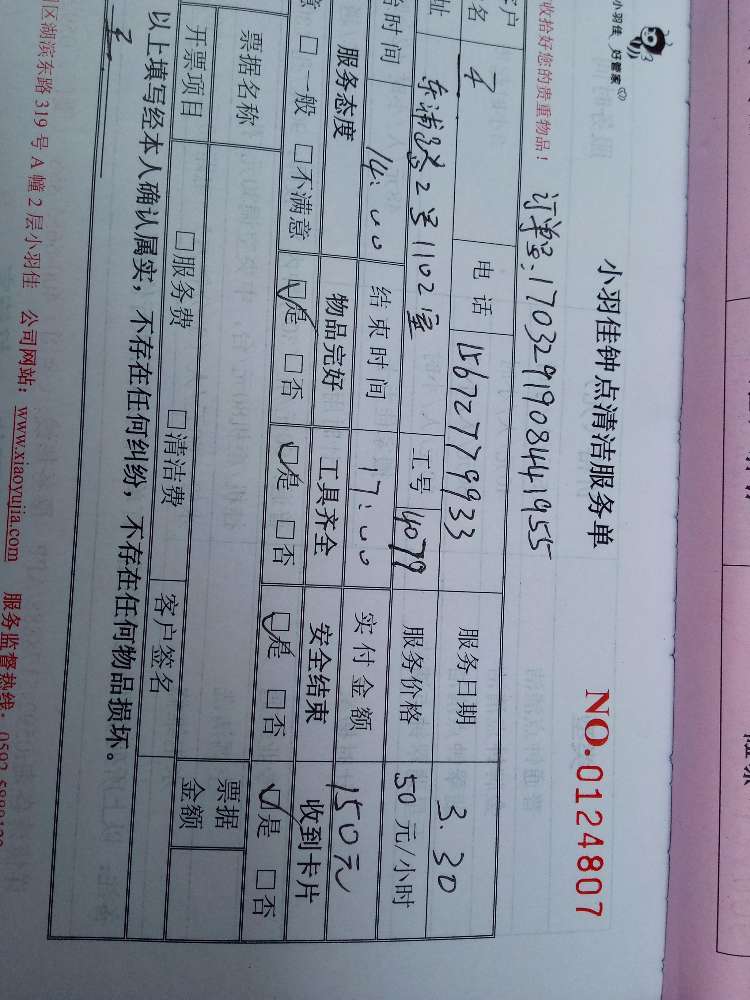 小羽佳 好管家
收拾好您的贵重物品！
小羽佳钟点清洁服务单
NO.0124807
订单号：1703291908441955
电话 15672779933 服务日期 3.30
址 2号1102室 工号 4079 服务价格 50元/小时
时间 14:00 结束时间 17:00 实付金额 150元
服务态度 物品完好 工具齐全 安全结束 收到卡片
意 □一般 □不满意 ☑是 □否 ☑是 □否 ☑是 □否 ☑是 □否
票据名称 票据金额
开票项目 □服务费 □清洁费 客户签名
以上填写经本人确认属实，不存在任何纠纷，不存在任何物品损坏。
区湖滨东路319号A幢2层小羽佳 公司网站：www.xiaoyujia.com 服务监督热线：0592